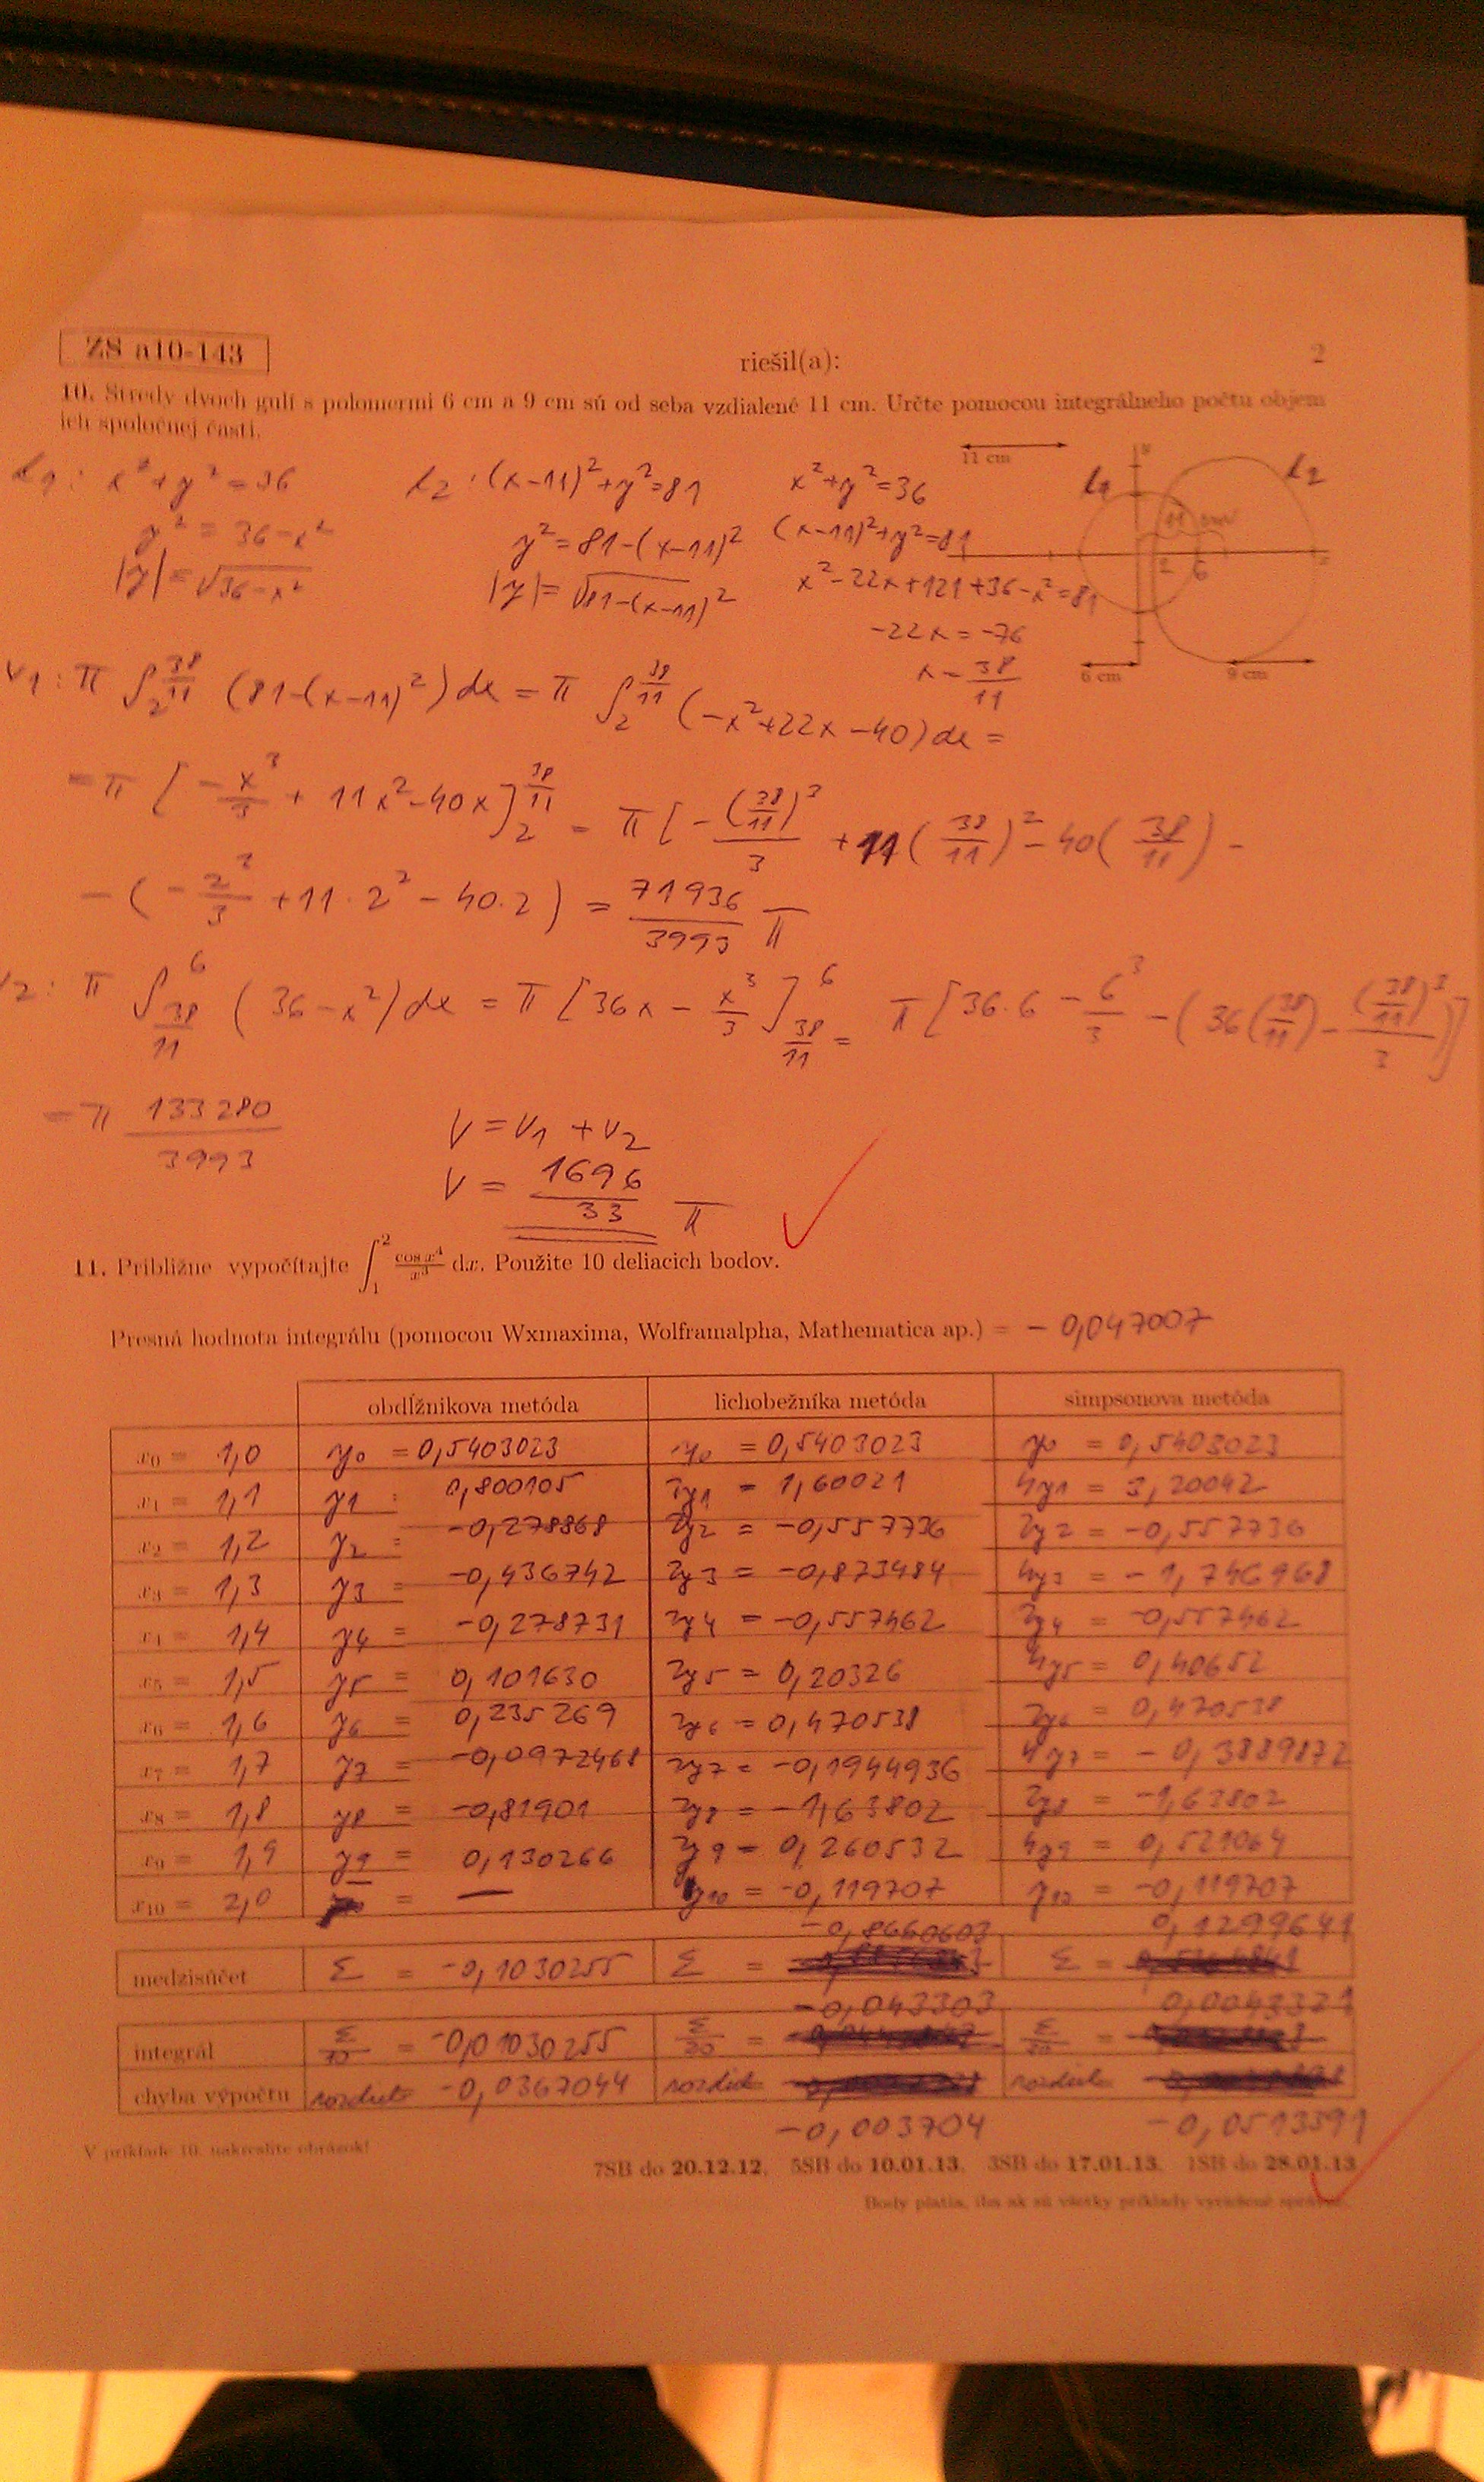 ZS a10-143
riešil(a):
2
10. Stredy dvoch gulí s polomermi 6 cm a 9 cm sú od seba vzdialené 11 cm. Určte pomocou integrálneho počtu objem
ich spoločnej časti.
x² + y² = 36
: (x-11)² + y² = 81
x² + y² = 36
11 cm
y² = 36 - x²
y² = 81 - (x-11)²
(x-11)² + y² = 81
|y| = √36 - x²
|y| = √81 - (x-11)²
x² - 22x + 121 + 36 - x² = 81
2 6
-22x = -76
x = 38/11
6 cm
9 cm
V1 : π ∫_2^{38/11} (81 - (x-11)²) dx = π ∫_2^{38/11} (-x² + 22x - 40) dx =
= π [ - x³/3 + 11x² - 40x ]_2^{38/11} = π [ - (38/11)³/3 + 11 (38/11)² - 40 (38/11) -
- ( - 2³/3 + 11 · 2² - 40.2 ) = 71936/3993 π
V2 : π ∫_{38/11}^6 (36 - x²) dx = π [ 36x - x³/3 ]_{38/11}^6 = π [ 36.6 - 6³/3 - ( 36 (38/11) - (38/11)³/3 ) ]
= π 133280/3993
V = V1 + V2
V = 1696/33 π
11. Približne vypočítajte ∫_1^2 cos x⁴/x³ dx. Použite 10 deliacich bodov.
Presná hodnota integrálu (pomocou Wxmaxima, Wolframalpha, Mathematica ap.) = - 0,047007
obdĺžnikova metóda lichobežníka metóda simpsonova metóda
x0 = 1,0 y0 = 0,5403023 y0 = 0,5403023 y0 = 0,5403023
x1 = 1,1 y1 = 0,800105 2y1 = 1,60021 4y1 = 3,20042
x2 = 1,2 y2 = -0,278868 2y2 = -0,557736 2y2 = -0,557736
x3 = 1,3 y3 = -0,436742 2y3 = -0,873484 4y3 = - 1,746968
x4 = 1,4 y4 = -0,278731 2y4 = -0,557462 2y4 = -0,557462
x5 = 1,5 y5 = 0,101630 2y5 = 0,20326 4y5 = 0,40652
x6 = 1,6 y6 = 0,235269 2y6 = 0,470538 2y6 = 0,470538
x7 = 1,7 y7 = -0,0972468 2y7 = -0,1944936 4y7 = - 0,3889872
x8 = 1,8 y8 = -0,81901 2y8 = -1,63802 2y8 = -1,63802
x9 = 1,9 y9 = 0,130266 2y9 = 0,260532 4y9 = 0,521064
x10 = 2,0 = — y10 = -0,119707 y10 = -0,119707
-0,8660603 0,1299641
medzisúčet Σ = -0,1030255 Σ = Σ =
-0,043303 0,0043321
integrál Σ/10 = -0,01030255 Σ/20 = =
chyba výpočtu rozdiel = -0,0367044 rozdiel = rozdiel =
-0,003704 -0,0513391
V príklade 10. nakreslite obrázok!
7SB do 20.12.12, 5SB do 10.01.13, 3SB do 17.01.13, 1SB do 28.01.13
Body platia, iba ak sú všetky príklady vyriešené